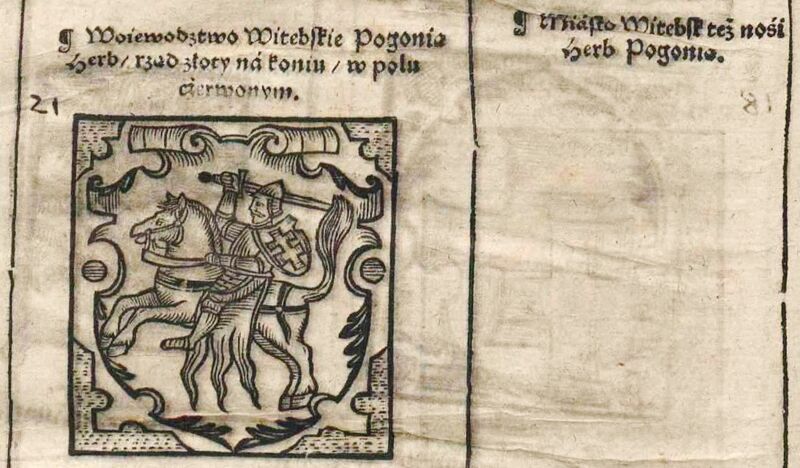 ¶ Woiewodztwo Witebskie Pogonia
Herb / rząd złoty ná koniu / w polu
czerwonym.
21
¶ Miásto Witebsk też nośi
Herb Pogonia.